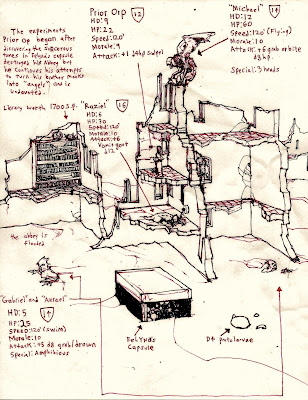 The experiments
Prior Orp began after
discovering the sorcerous
tomes in Felynd's capsule
destroyed his Abbey but
he continues his attempts
to turn his brother monks
into "angels" and is
undaunted.
Prior Orp 12
HD:9
HP:22
Speed:120'
Morale:9
Attack:+1 1d4p
"Michael" 14
HD:12
HP:60
Speed:120' (Flying)
Morale:10
Attack:+6 grab or bite
d8hp.
Special: 3 heads
Library worth 1700s.p.
"Raziel" 15
HD:6
HP:30
Speed:120'
Morale:10
Attack:+6
Vomit gout
d12
the abbey is
flooded
"Gabriel" and "Azrael"
HD:5 14
HP:25
SPEED:120' (swim)
Morale:10
Attack:+5 d8 grab/drown
Special: Amphibious
Felynd's
Capsule
D4